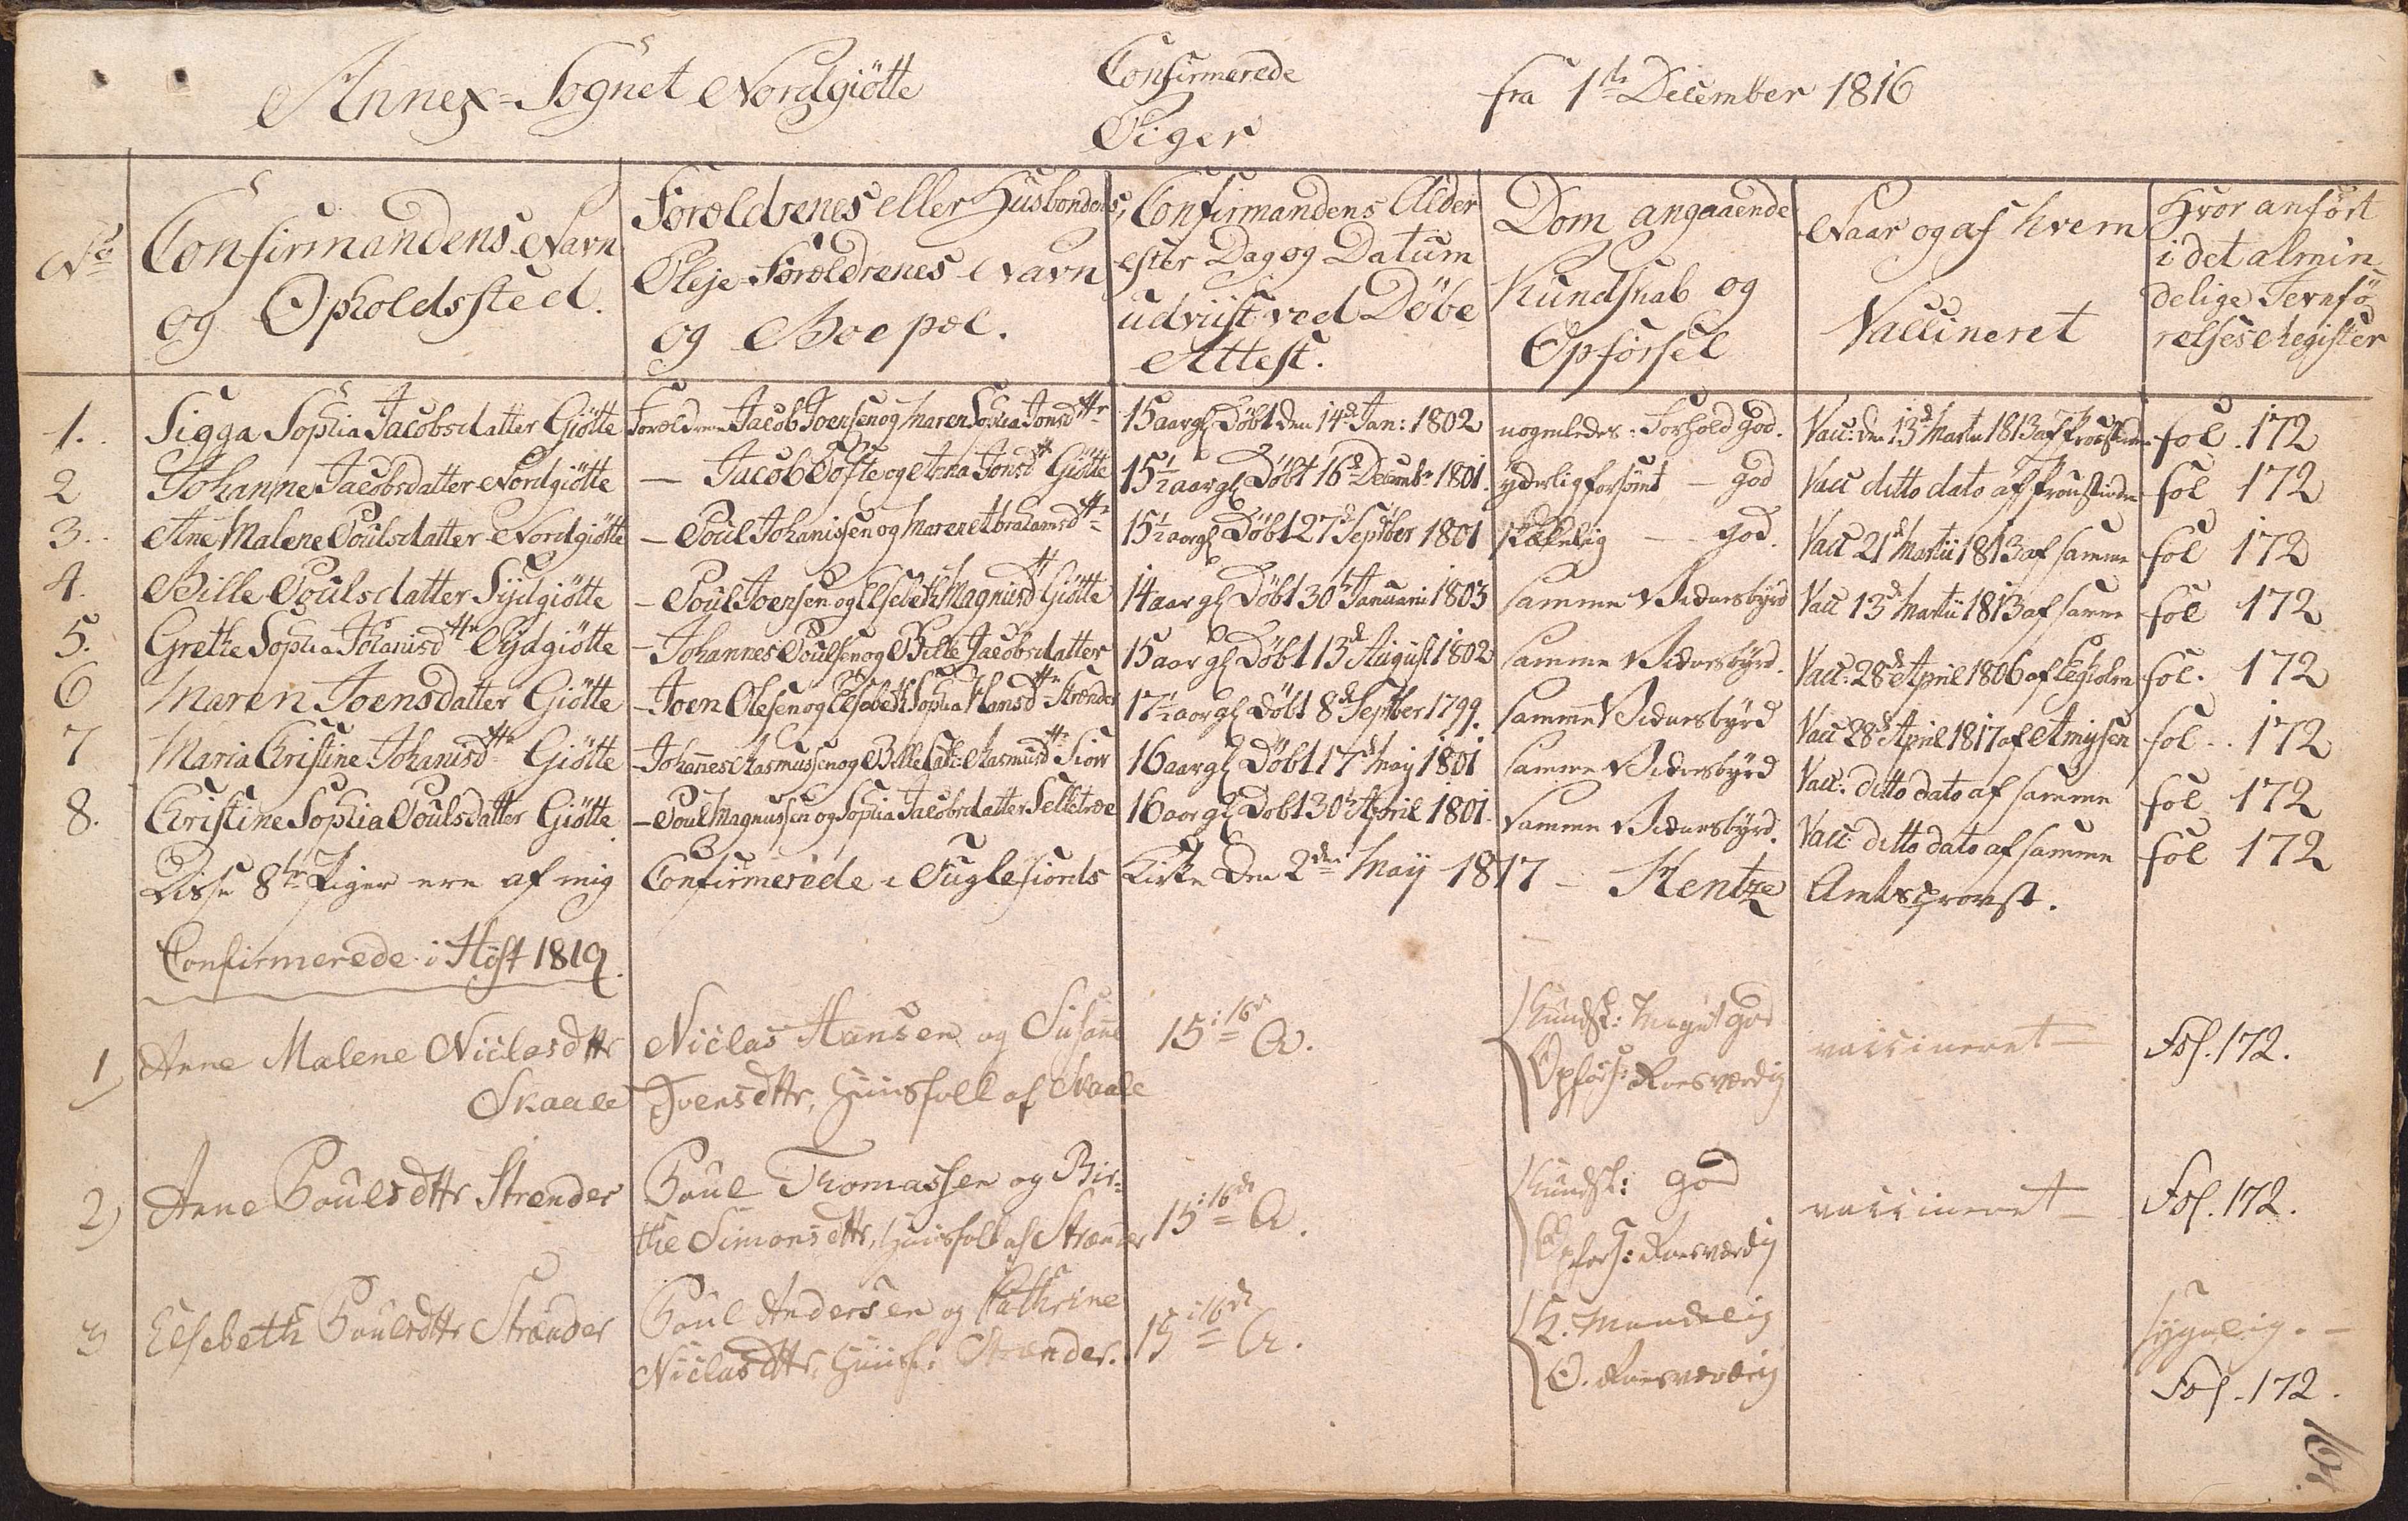 Annex-Sognet Nordgiötte Confirmerede Piger fra 1ste December 1816
No Confirmandens Navn og Opholdssted. Forældrenes eller Husbondens, Pleje-Forældrenes Navn og Boepæl. Confirmandens Alder efter Dag og Datum udviist ved Döbe Attest. Dom angaaende Kundskab og Opförsel Naar og af hvem Vaccineret Hvor anfört i det almindelige Jevnförelses Register
1. Sigga Sophia Jacobsdatter Giötte Forældrene Jacob Joensen og Maren Sophia Jonsdttr 15 aar gl Döbt den 14de Jan: 1802 nogenledes. Forhold god. Vacc: den 13de Martii 1813 af Provstinden fol. 172
2 Johanne Jacobsdatter Nordgiötte — Jacob Tofte og Anna Jonsdttr Giötte 15½ aar gl Döbt 16de Decembr 1801. yderlig forsömt — god Vacc ditto dato af Provstinden fol 172
3. Ane Malene Poulsdatter Nordgiötte — Poul Johanissen og Maren Abrahamsdttr 15½ aar gl Döbt 27de Septber 1801 skikkelig — god. Vacc 21de Martii 1813 af samme fol 172
4. Bille Poulsdatter Sydgiötte — Poul Joensen og Elsebeth Magnusdttr Giötte 14 aar gl Döbt 30te Januarii 1803 samme Vidnesbyrd Vacc 13de Martii 1813 af samme fol 172
5. Grethe Sophia Johanisdttr Sydgiötte — Johannes Poulsen og Bille Jacobsdatter 15 aar gl Döbt 13de August 1802 samme Vidnesbyrd. Vacc: 28de April 1806 af fol. 172
6 Maren Joensdatter Giötte — Joen Olesen og Elsebeth Sophia Hansdttr Strænder 17½ aar gl Döbt 8de Septber 1799. samme Vidnesbyrd Vacc 28de April 1817 af fol. 172
7 Maria Christine Johanisdttr Giötte — Johannes Rasmussen og Bille Cath: Rasmusdttr Siov 16 aar gl Döbt 17de Maij 1801 samme Vidnesbyrd Vacc: ditto dato af samme fol 172
8. Christine Sophia Poulsdatter Giötte — Poul Magnussen og Sophia Jacobsdatter Selletræe 16 aar gl Döbt 30te April 1801. samme Vidnesbyrd. Vacc: ditto dato af samme fol 172
Disse 8te Piger ere af mig Confirmerede i Fuglefiords Kirke den 2den Maij 1817 — Hentze Amtsprovst.
Confirmerede i Höst 1819.
1) Anne Malene Niclasdttr Skaale Niclas Hansen og Susanne Joensdttr, Huusfolk af Skaale 15 i 16de A. Kundsk: Meget god Opförs: Roesværdig vaccineret — Fol. 172.
2) Anne Poulsdttr Strender Poul Thomassen og Birthe Simonsdttr, Huusfolk af Strænder 15 i 16de A. Kundsk: god Opförs: Roesværdig vaccineret — Fol. 172.
3 Elsebeth Poulsdttr Strænder Poul Andersen og Cathrine Niclasdttr, Huusf: Strænder. 15 i 16de A. K. Maadelig O. Roesværdig sygelig. — Fol. 172.